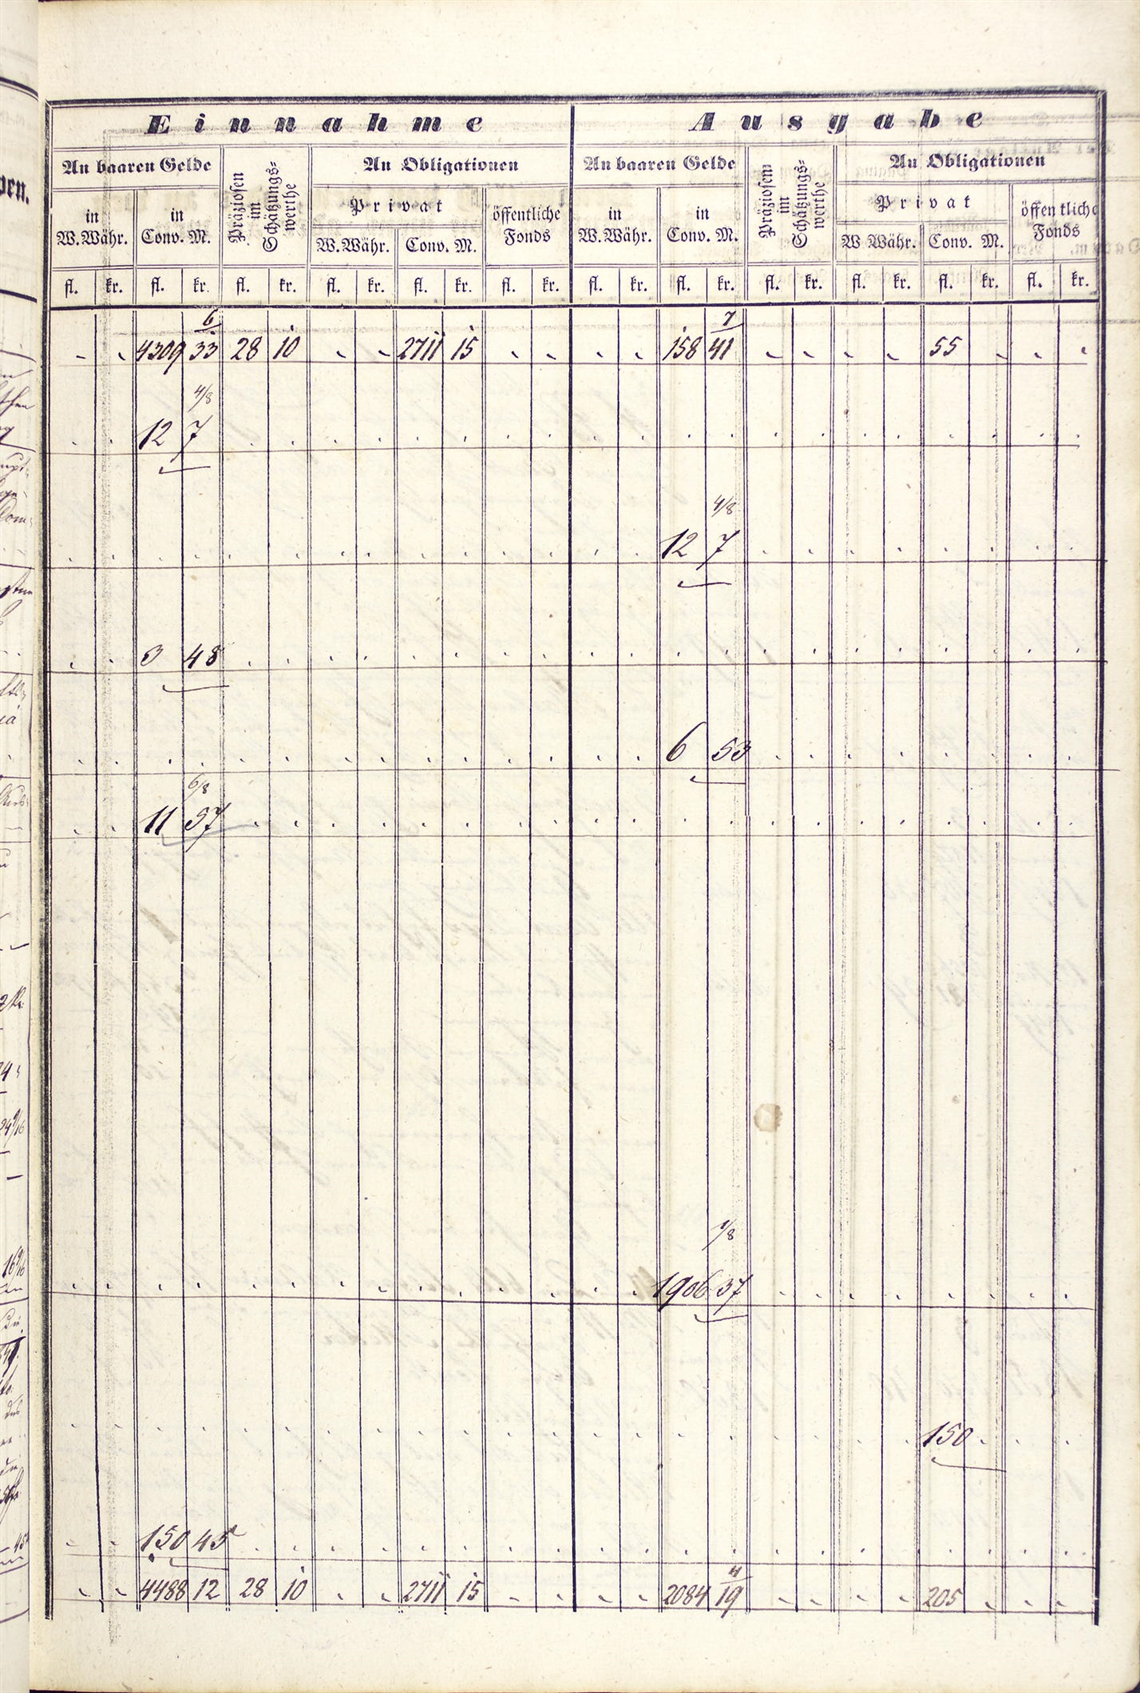 Einnahme Ausgabe
An baaren Gelde Präziosen im Schätzungs-werthe An Obligationen An baaren Gelde Präziosen im Schätzungs-werthe An Obligationen
Privat öffentliche Fonds Privat öffentliche Fonds
in W.Währ. in Conv. M. W.Währ. Conv. M. in W.Währ. in Conv. M. W.Währ. Conv. M.
fl. kr. fl. kr. fl. kr. fl. kr. fl. kr. fl. kr. fl. kr. fl. kr. fl. kr. fl. kr. fl. kr. fl. kr.
6 7
4309 33 28 10 2711 15 158 41 55
4/8
12 7
4/8
12 7
3 48
6 53
6/8
11 57
1/8
1906 37
150
150 45
4
4488 12 28 10 2711 15 2084 19 205